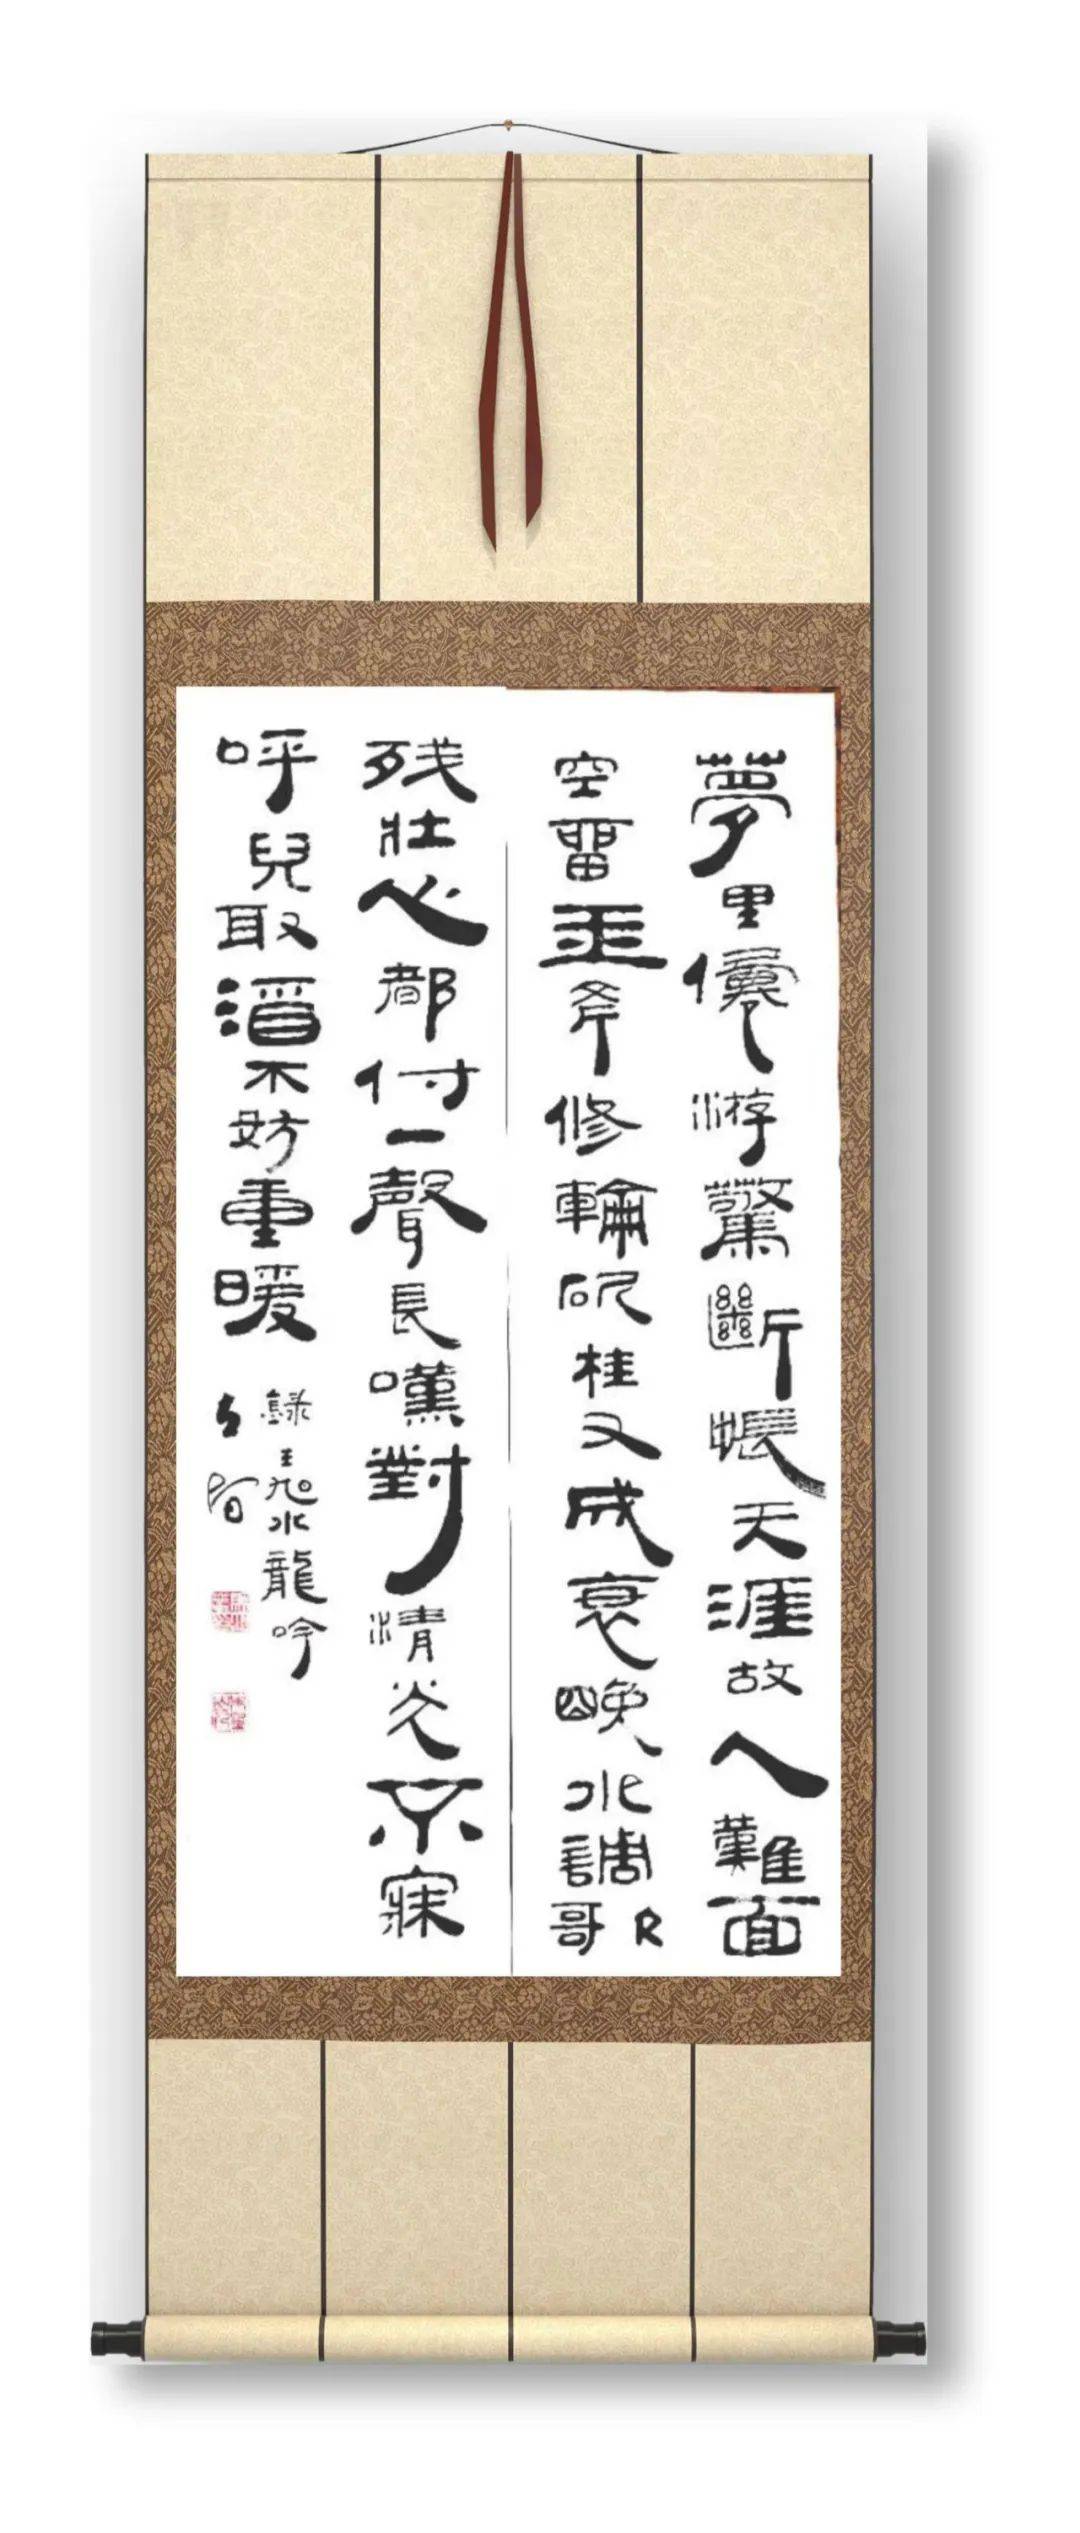 夢里僊游驚斷帳天涯故人難面
空留玉斧修輪斫桂又成衰晚水調哥
残壮心都付一聲長嘆對清炎不寐
呼兒取酒不妨重暖
錄王旭水龍吟